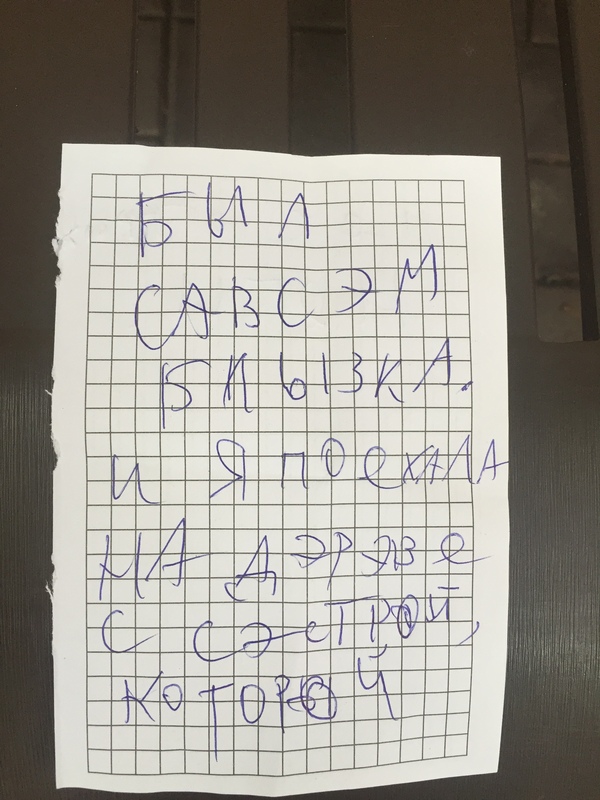 БЫЛ
САВСЭМ
БЛЫЗКА.
И Я ПОЕХАЛА
НА ДЭРЭВЕ
С СЭСТРОЙ,
КОТОРОЙ